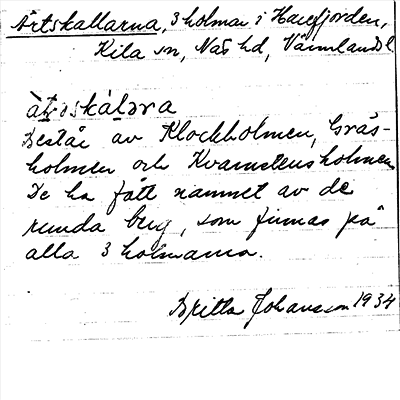 Ärtskallarna, 3 holmar i Harefjorden,
Kila sn, Näs hd, Värmlands l
àt̀oskálɔra
Består av Klockholmen, Gräs-
holmen och Kvarnstensholmen
De ha fått namnet av de
runda berg, som finnas på
alla 3 holmarna.
Britta Johansson 1934